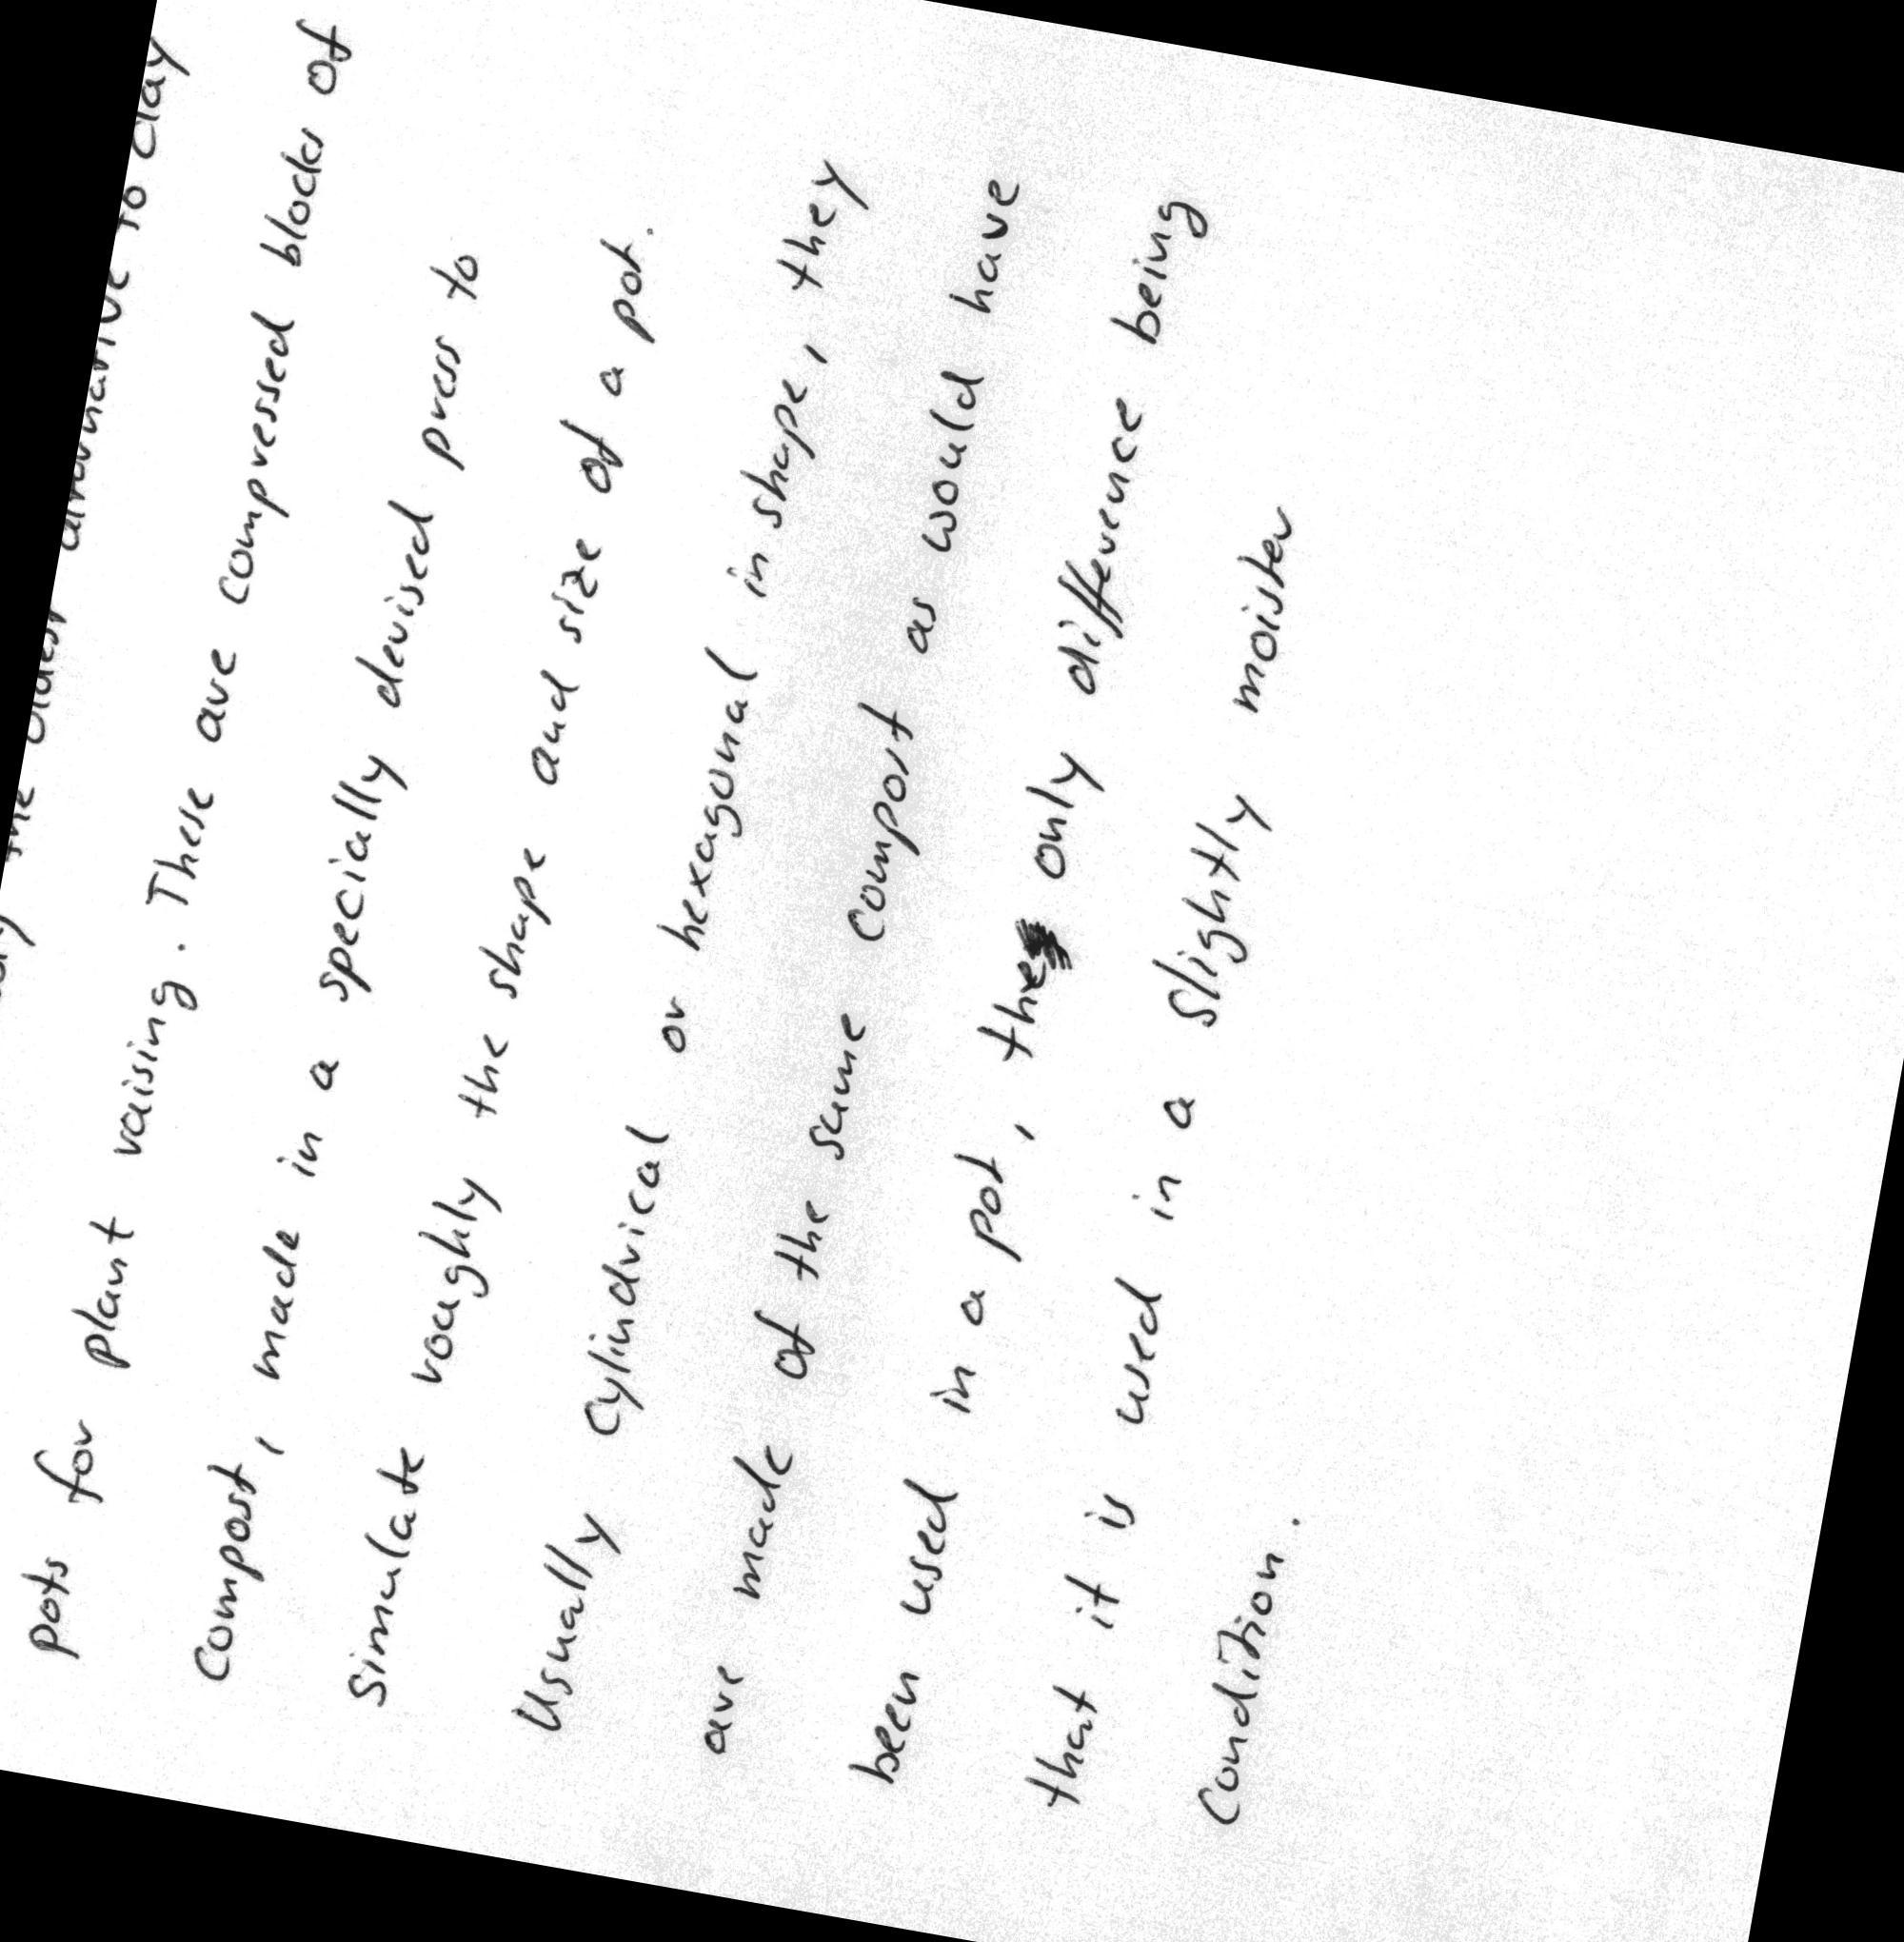 the oldest alternative to clay
pots for plant raising. These are compressed blocks of
Compost, made in a specially devised press to
Simulate roughly the shape and size of a pot.
Usually Cylindrical or hexagonal in shape, they
are made of the same Compost as would have
been used in a pot, the only difference being
that it is used in a slightly moister
Condition.